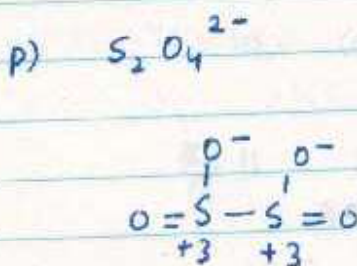 p) S₂O₄²⁻
O⁻ O⁻
O=S—S=O
+3 +3